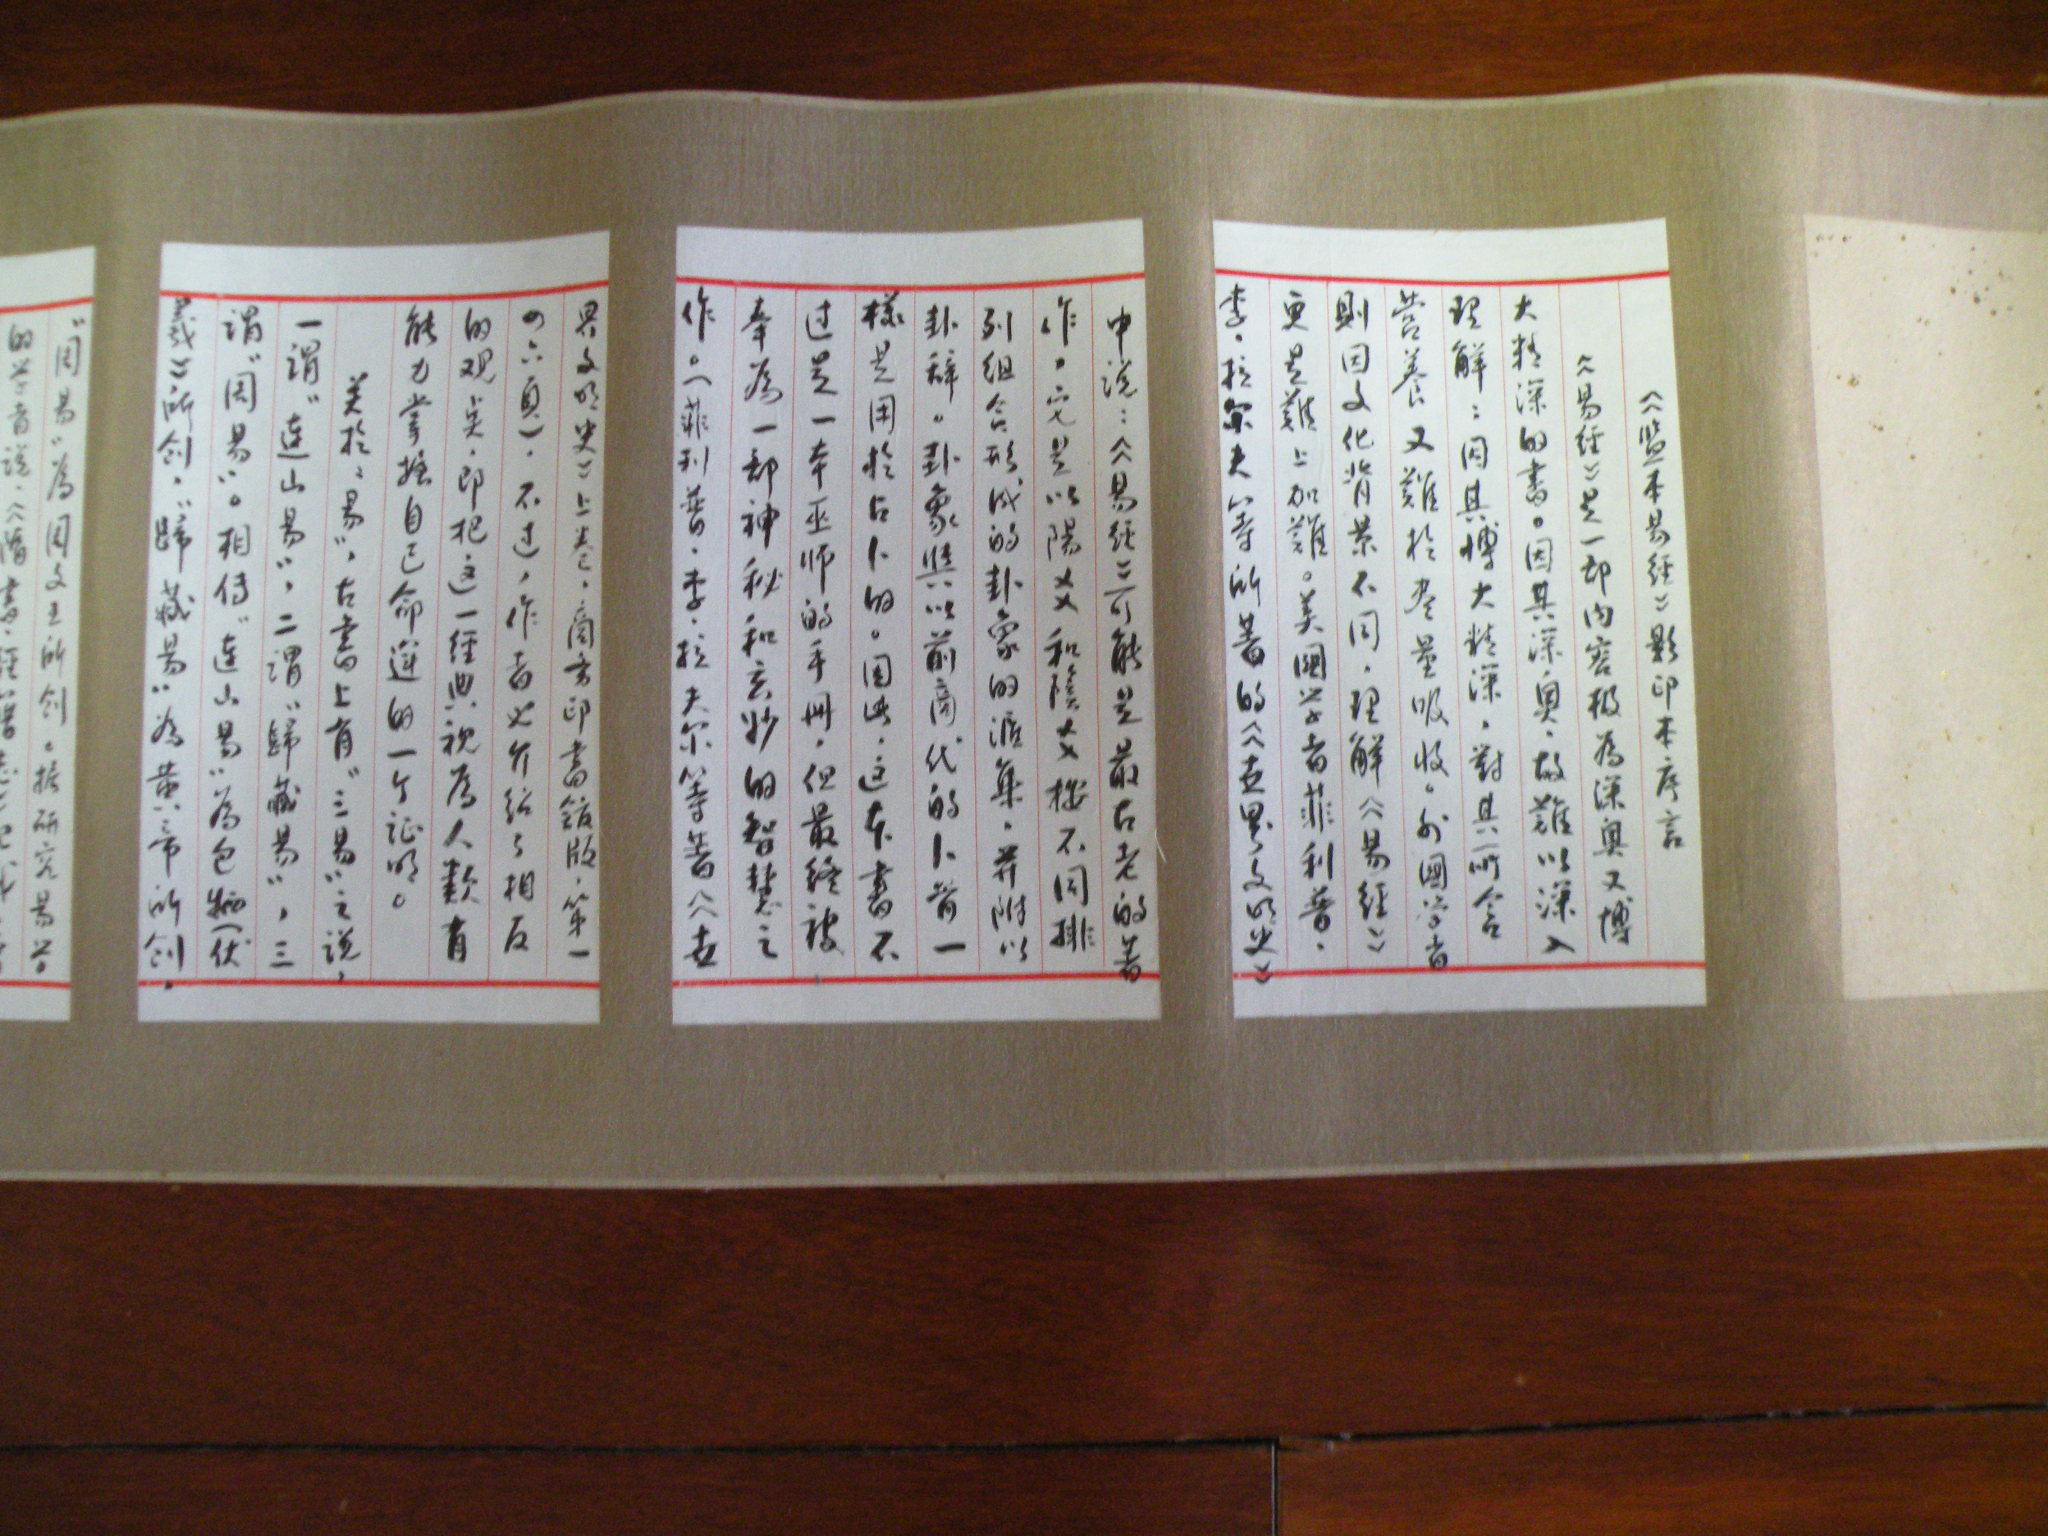 《監本易經》影印本序言
《易經》是一部内容极為深奥又博
大精深的書。因其深奥，故難以深入
理解；因其博大精深，對其所含
营养又難於尽量吸收。外國学者
則因文化背景不同，理解《易經》
更是難上加難。美國学者菲利普·
李·拉尔夫等所著的《世界文明史》
中说：《易經》可能是最古老的著
作。它是以陽爻和陰爻按不同排
列组合形成的卦象的滙集，并附以
卦辞。卦象與以前商代的卜骨一
樣是用於占卜的。因此，这本書不
过是一本巫师的手册，但最終被
奉為一部神秘和玄妙的智慧之
作。（菲利普·李·拉夫尔等著《世
界文明史》上卷，商务印書舘版，第一
四六頁）。不过，作者也介绍了相反
的观奌，即把这一經典視為人類有
能力掌握自己命運的一个证明。
关於“易”，古書上有“三易”之说，
一謂“連山易”，二謂“歸藏易”，三
謂“周易”。相传“連山易”為包犧（伏
羲）所创，“歸藏易”為黄帝所创，
“周易”為周文王所创。据研究易学
的学者说，《隋書·經籍志》